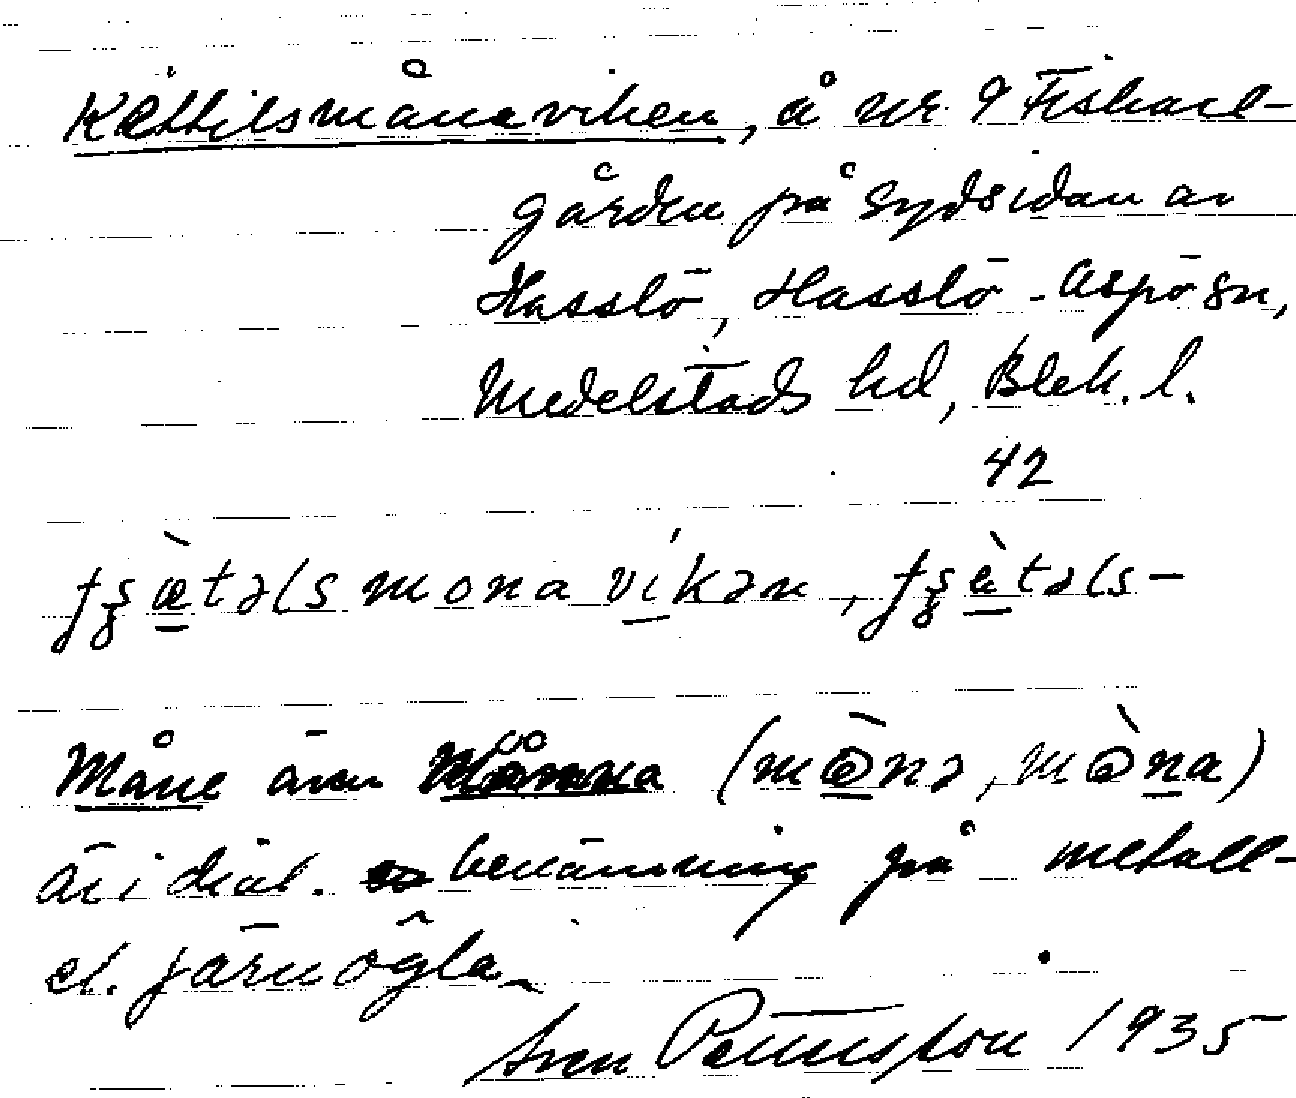 Kättilsmånaviken, å nr 9 Fiskare-
gården på sydsidan av
Hasslö, Hasslö-Aspö sn,
Medelstads hd, Blek. l.
42
ʄʂæ̀təlsmonavíkən, ʄʂæ̀təls-
Måne även Månna (mò̱nə, mòna)
är i dial. benämning på metall-
el. järnögla.
Sven Pettersson 1935